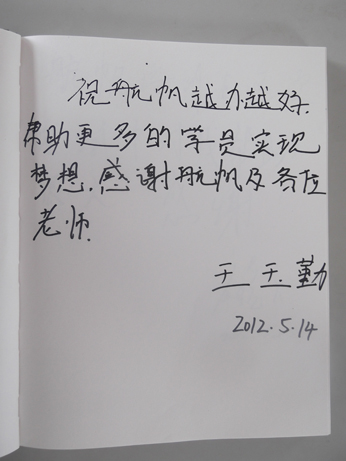 祝航帆越办越好.
帮助更多的学员实现
梦想.感谢航帆及各位
老师
王玉勤
2012.5.14